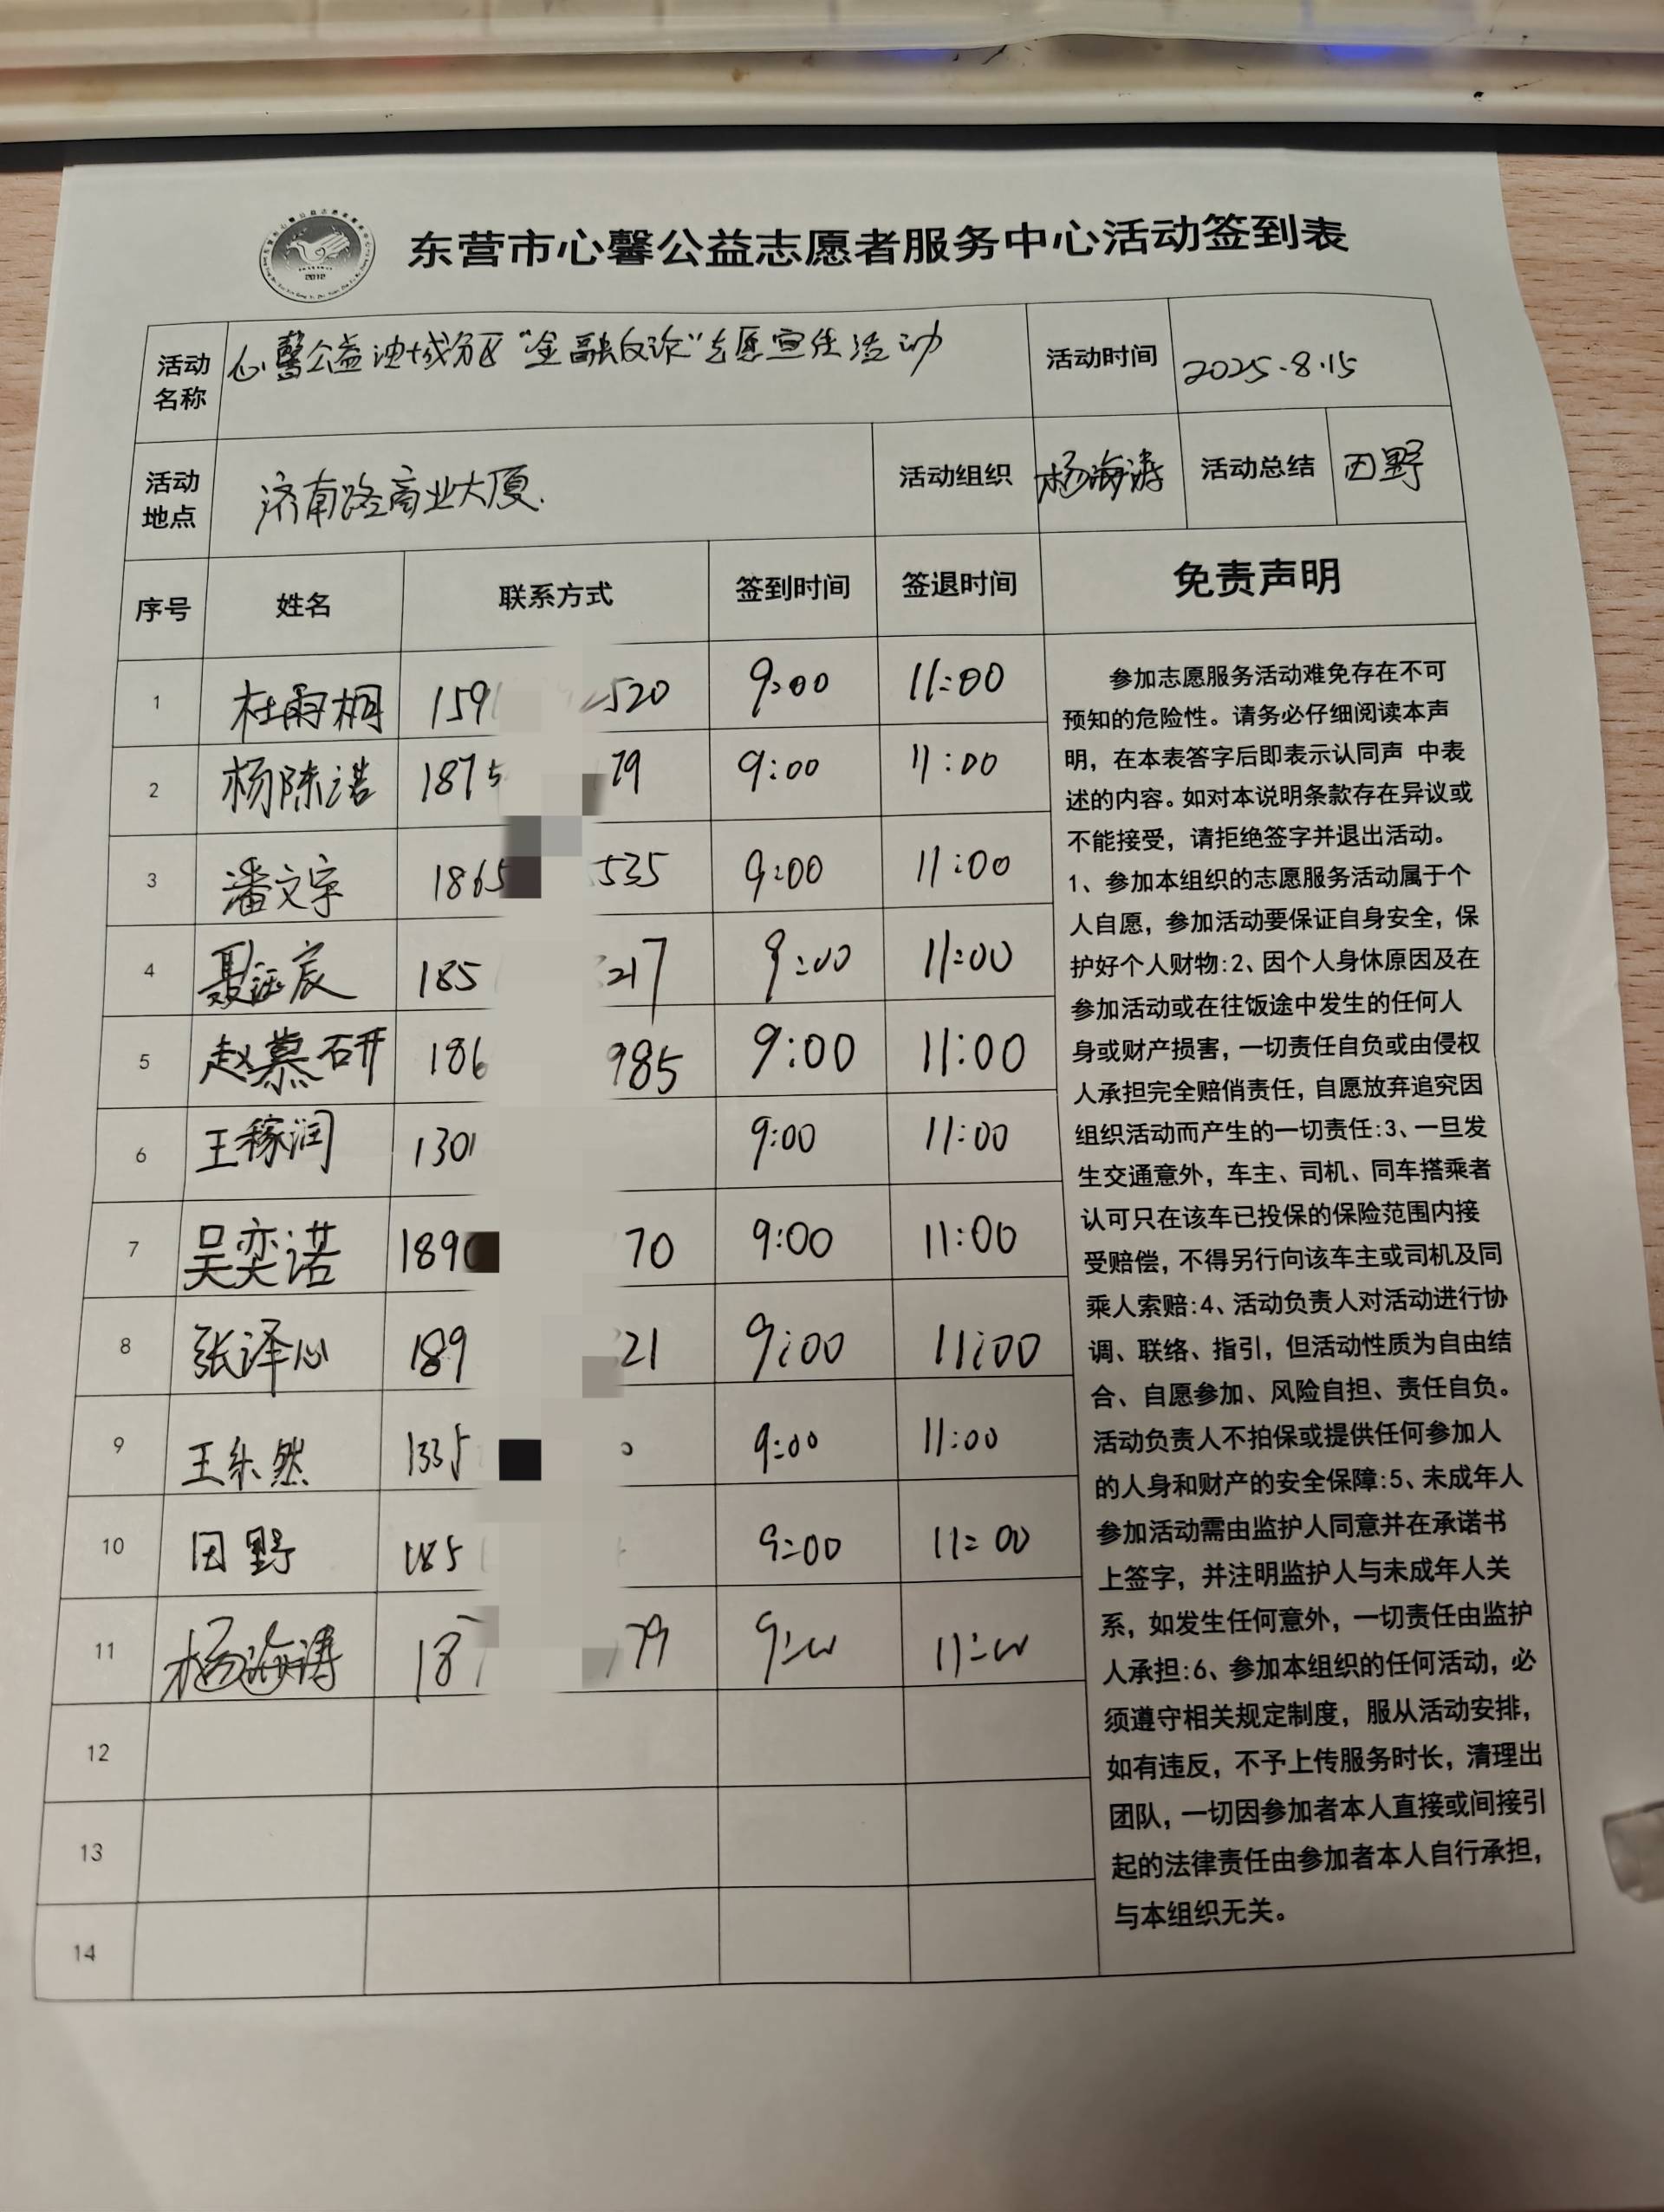 东营市心馨公益志愿者服务中心活动签到表
活动名称 心馨公益油城分区“金融反诈”志愿宣传活动 活动时间 2025.8.15
活动地点 济南路商业大厦. 活动组织 杨海涛 活动总结 田野
序号 姓名 联系方式 签到时间 签退时间 免责声明
1 杜雨桐 159 2520 9:00 11:00
2 杨陈诺 1875 79 9:00 11:00
3 潘文宇 1865 535 9:00 11:00
4 聂 辰 185 217 9:00 11:00
5 赵慕研 186 985 9:00 11:00
6 王稼润 1301 9:00 11:00
7 吴奕诺 1890 70 9:00 11:00
8 张泽心 189 21 9:00 11:00
9 王乐然 1335 0 9:00 11:00
10 田野 185 9:00 11:00
11 杨海涛 187 79 9:00 11:00
12
13
14
参加志愿服务活动难免存在不可
预知的危险性。请务必仔细阅读本声
明，在本表答字后即表示认同声 中表
述的内容。如对本说明条款存在异议或
不能接受，请拒绝签字并退出活动。
1、参加本组织的志愿服务活动属于个
人自愿，参加活动要保证自身安全，保
护好个人财物:2、因个人身休原因及在
参加活动或在往饭途中发生的任何人
身或财产损害，一切责任自负或由侵权
人承担完全赔俏责任，自愿放弃追究因
组织活动而产生的一切责任:3、一旦发
生交通意外，车主、司机、同车搭乘者
认可只在该车已投保的保险范围内接
受赔偿，不得另行向该车主或司机及同
乘人索赔:4、活动负责人对活动进行协
调、联络、指引，但活动性质为自由结
合、自愿参加、风险自担、责任自负。
活动负责人不拍保或提供任何参加人
的人身和财产的安全保障:5、未成年人
参加活动需由监护人同意并在承诺书
上签字，并注明监护人与未成年人关
系，如发生任何意外，一切责任由监护
人承担:6、参加本组织的任何活动，必
须遵守相关规定制度，服从活动安排，
如有违反，不予上传服务时长，清理出
团队，一切因参加者本人直接或间接引
起的法律责任由参加者本人自行承担，
与本组织无关。